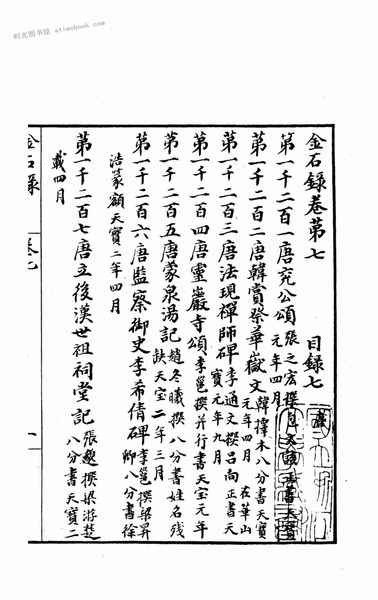 时光图书馆 atimebook.com
金石錄卷第七 目錄七
第一千二百一唐兖公頌 張之宏撰 正書天寶元年四月
第一千二百二唐韓賞祭華嶽文 韓擇木八分書天寶元年四月 在華山
第一千二百三唐法現禪師碑 李適文撰吕向正書天寶元年九月
第一千二百四唐靈巖寺頌 李邕撰并行書天宝元年
第一千二百五唐蒙泉湯記 趙冬曦撰八分書姓名残缺天宝二年三月
第一千二百六唐監察御史李希倩碑 李邕撰梁昇卿八分書徐浩篆額天寶二年四月
第一千二百七唐立後漢世祖祠堂記 張𠮓撰梁游楚八分書天寶二
載四月
金石錄 卷七 一